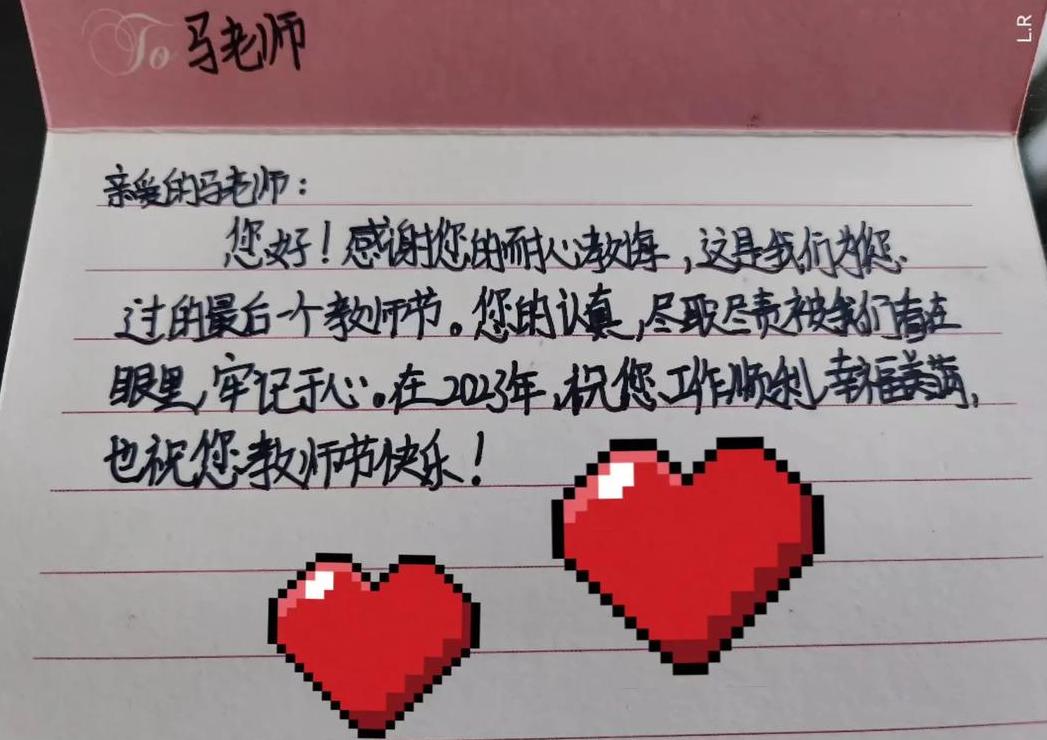 To 马老师
L.R
亲爱的马老师：
您好！感谢您的耐心教诲，这是我们为您
过的最后一个教师节。您的认真，尽职尽责被我们看在
眼里，牢记于心。在2023年，祝您工作顺利，幸福美满，
也祝您教师节快乐！